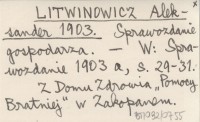 LITWINOWICZ Alek-
sander 1903. Sprawozdanie
gospodarza. — W: Spra-
wozdanie 1903 a, s. 29-31.
Z Domu Zdrowia „Pomocy
Bratniej" w Zakopanem.